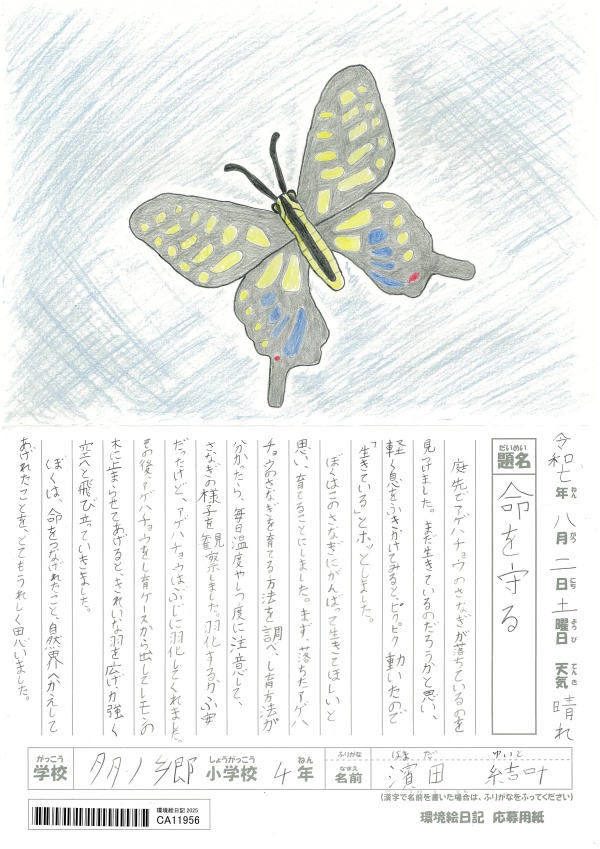 令和七年八月二日土曜日 天気 晴れ
ねん がつ にち ようび てんき
だいめい
題名 命を守る
庭先でアゲハチョウのさなぎが落ちているのを
見つけました。まだ生きているのだろうかと思い、
軽く息をふきかけてみると、ピクピク動いたので
「生きている」とホッとしました。
ぼくはこのさなぎにがんばって生きてほしいと
思い、育てることにしました。まず、落ちたアゲハ
チョウのさなぎを育てる方法を調べ、し育方法が
分かったら、毎日温度やしつ度に注意して、
さなぎの様子を観察しました。羽化するか不安
だったけど、アゲハチョウはぶじに羽化してくれました。
その後アゲハチョウをし育ケースから出してレモンの
木に止まらせてあげると、きれいな羽を広げ力強く
空へと飛び立っていきました。
ぼくは、命をつなげれたこと、自然界へかえして
あげれたことを、とてもうれしく思いました。
がっこう しょうがっこう ねん
学校 多ノ郷 小学校 4年
ふりがな はまだ ゆいと
なまえ
名前 濵田 結叶
(漢字で名前を書いた場合は、ふりがなをふってください)
環境絵日記 2025
CA11956
環境絵日記 応募用紙